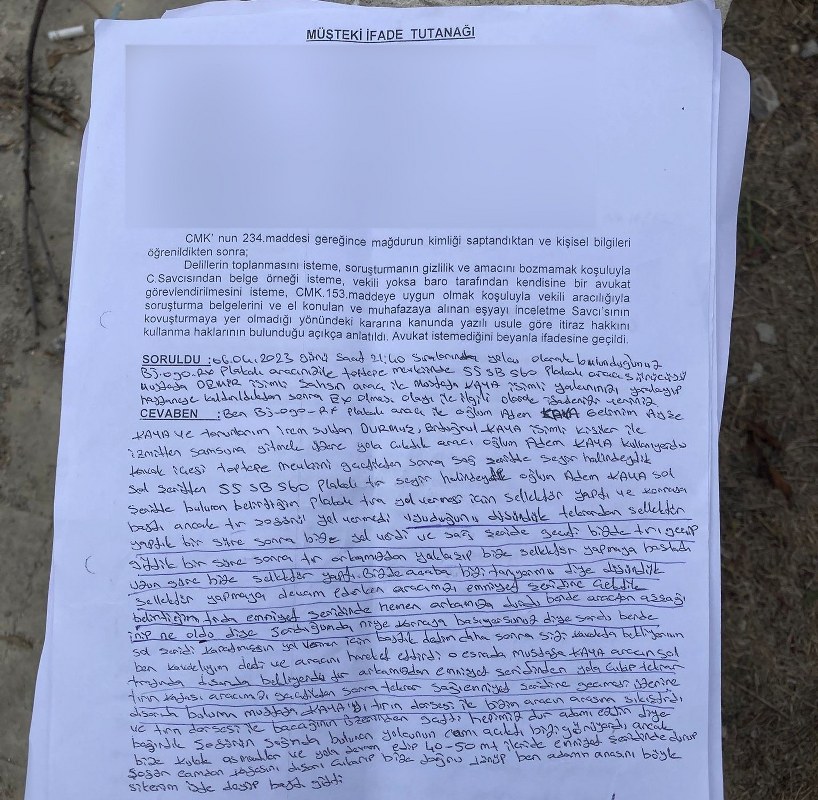 MÜŞTEKİ İFADE TUTANAĞI
CMK' nun 234.maddesi gereğince mağdurun kimliği saptandıktan ve kişisel bilgileri
öğrenildikten sonra;
Delillerin toplanmasını isteme, soruşturmanın gizlilik ve amacını bozmamak koşuluyla
C.Savcısından belge örneği isteme, vekili yoksa baro tarafından kendisine bir avukat
görevlendirilmesini isteme, CMK.153.maddeye uygun olmak koşuluyla vekili aracılığıyla
soruşturma belgelerini ve el konulan ve muhafazaya alınan eşyayı inceletme Savcı'sının
kovuşturmaya yer olmadığı yönündeki kararına kanunda yazılı usule göre itiraz hakkını
kullanma haklarının bulunduğu açıkça anlatıldı. Avukat istemediğini beyanla ifadesine geçildi.
SORULDU : 06.04.2023 günü saat 21:40 sıralarında yolcu olarak bulunduğunuz
plakalı aracınız ile toptepe mevkiinde 55 SB 560 plakalı araç sürücüsü
Mustafa isimli şahsın aracı ile Mustafa KAYA isimli yakınınızı yaralayıp
hastaneye kaldırıldıktan sonra Ex olması olayı ile ilgili olarak ifadeniz
CEVABEN : Ben plakalı araç ile oğlum Adem KAYA Gelinim Ayşe
KAYA ve torunlarım irem sultan DURMUŞ, Ertuğrul KAYA isimli kişiler ile
izmitten samsuna gitmek üzere yola çıktık aracı oğlum Adem KAYA kullanıyordu
kavak ilçesi toptepe mevkiini geçdikten sonra sağ şeritde seyir halindeydik
sol şeritten 55 SB 560 plakalı tır seyir halindeydi oğlum Adem KAYA sol
şeritde bulunan belirttiğim plakalı tıra yol vermesi için sellektör yaptı ve kornaya
bastı ancak tır şoförü yol vermedi uyuduğunu düşündük tekrardan sellektör
yaptık bir süre sonra bize yol verdi ve sağ şeride geçdi bizde tırı geçip
gittik bir süre sonra tır arkamızdan yaklaşıp bize sellektör yapmaya başladı
uzun süre bize sellektör yaptı. Bizde acaba bizi tanıyormu diye düşündük
sellektör yapmaya devam ederken aracımızı emniyet şeridine çekdik
belirttiğim tırda emniyet şeridinde hemen arkamızda durdu bende araçtan aşşağı
inip ne oldu diye sorduğumda niye kornaya basıyorsunuz diye sordu bende
sol şeridi kapatmışsın yol vermen için bastık dedim daha sonra sizi kavakda bekliyorum
ben kavaklıyım dedi ve aracını hareket ettirdi o esnada mustafa KAYA aracın sol
tarafında dışarıda bekliyordu tır arkamızdan emniyet şeridinden yola çıkıp tekrar
tırın kafası aracımızı geçdikten sonra tekrar sağ emniyet şeridine geçmesi üzerine
dışarıda bulunan mustafa KAYA'YI tırın dorsesi ile bizim aracın arasına sıkıştırdı
ve tırın dorsesi ile bacağının üzerinden geçti hepimiz dur adamı ezdin diye
bağırdık şoförün sağında bulunan yolcunun camı açıktı bizi görüyordu ancak
bize kulak asmadılar ve yola devam edip 40-50 mt ilerde emniyet şeridinde durup
şoför camdan kafasını dışarı çıkarıp bize doğru dönüp ben adamın anasını böyle
sikerim işte deyip basıp gitti